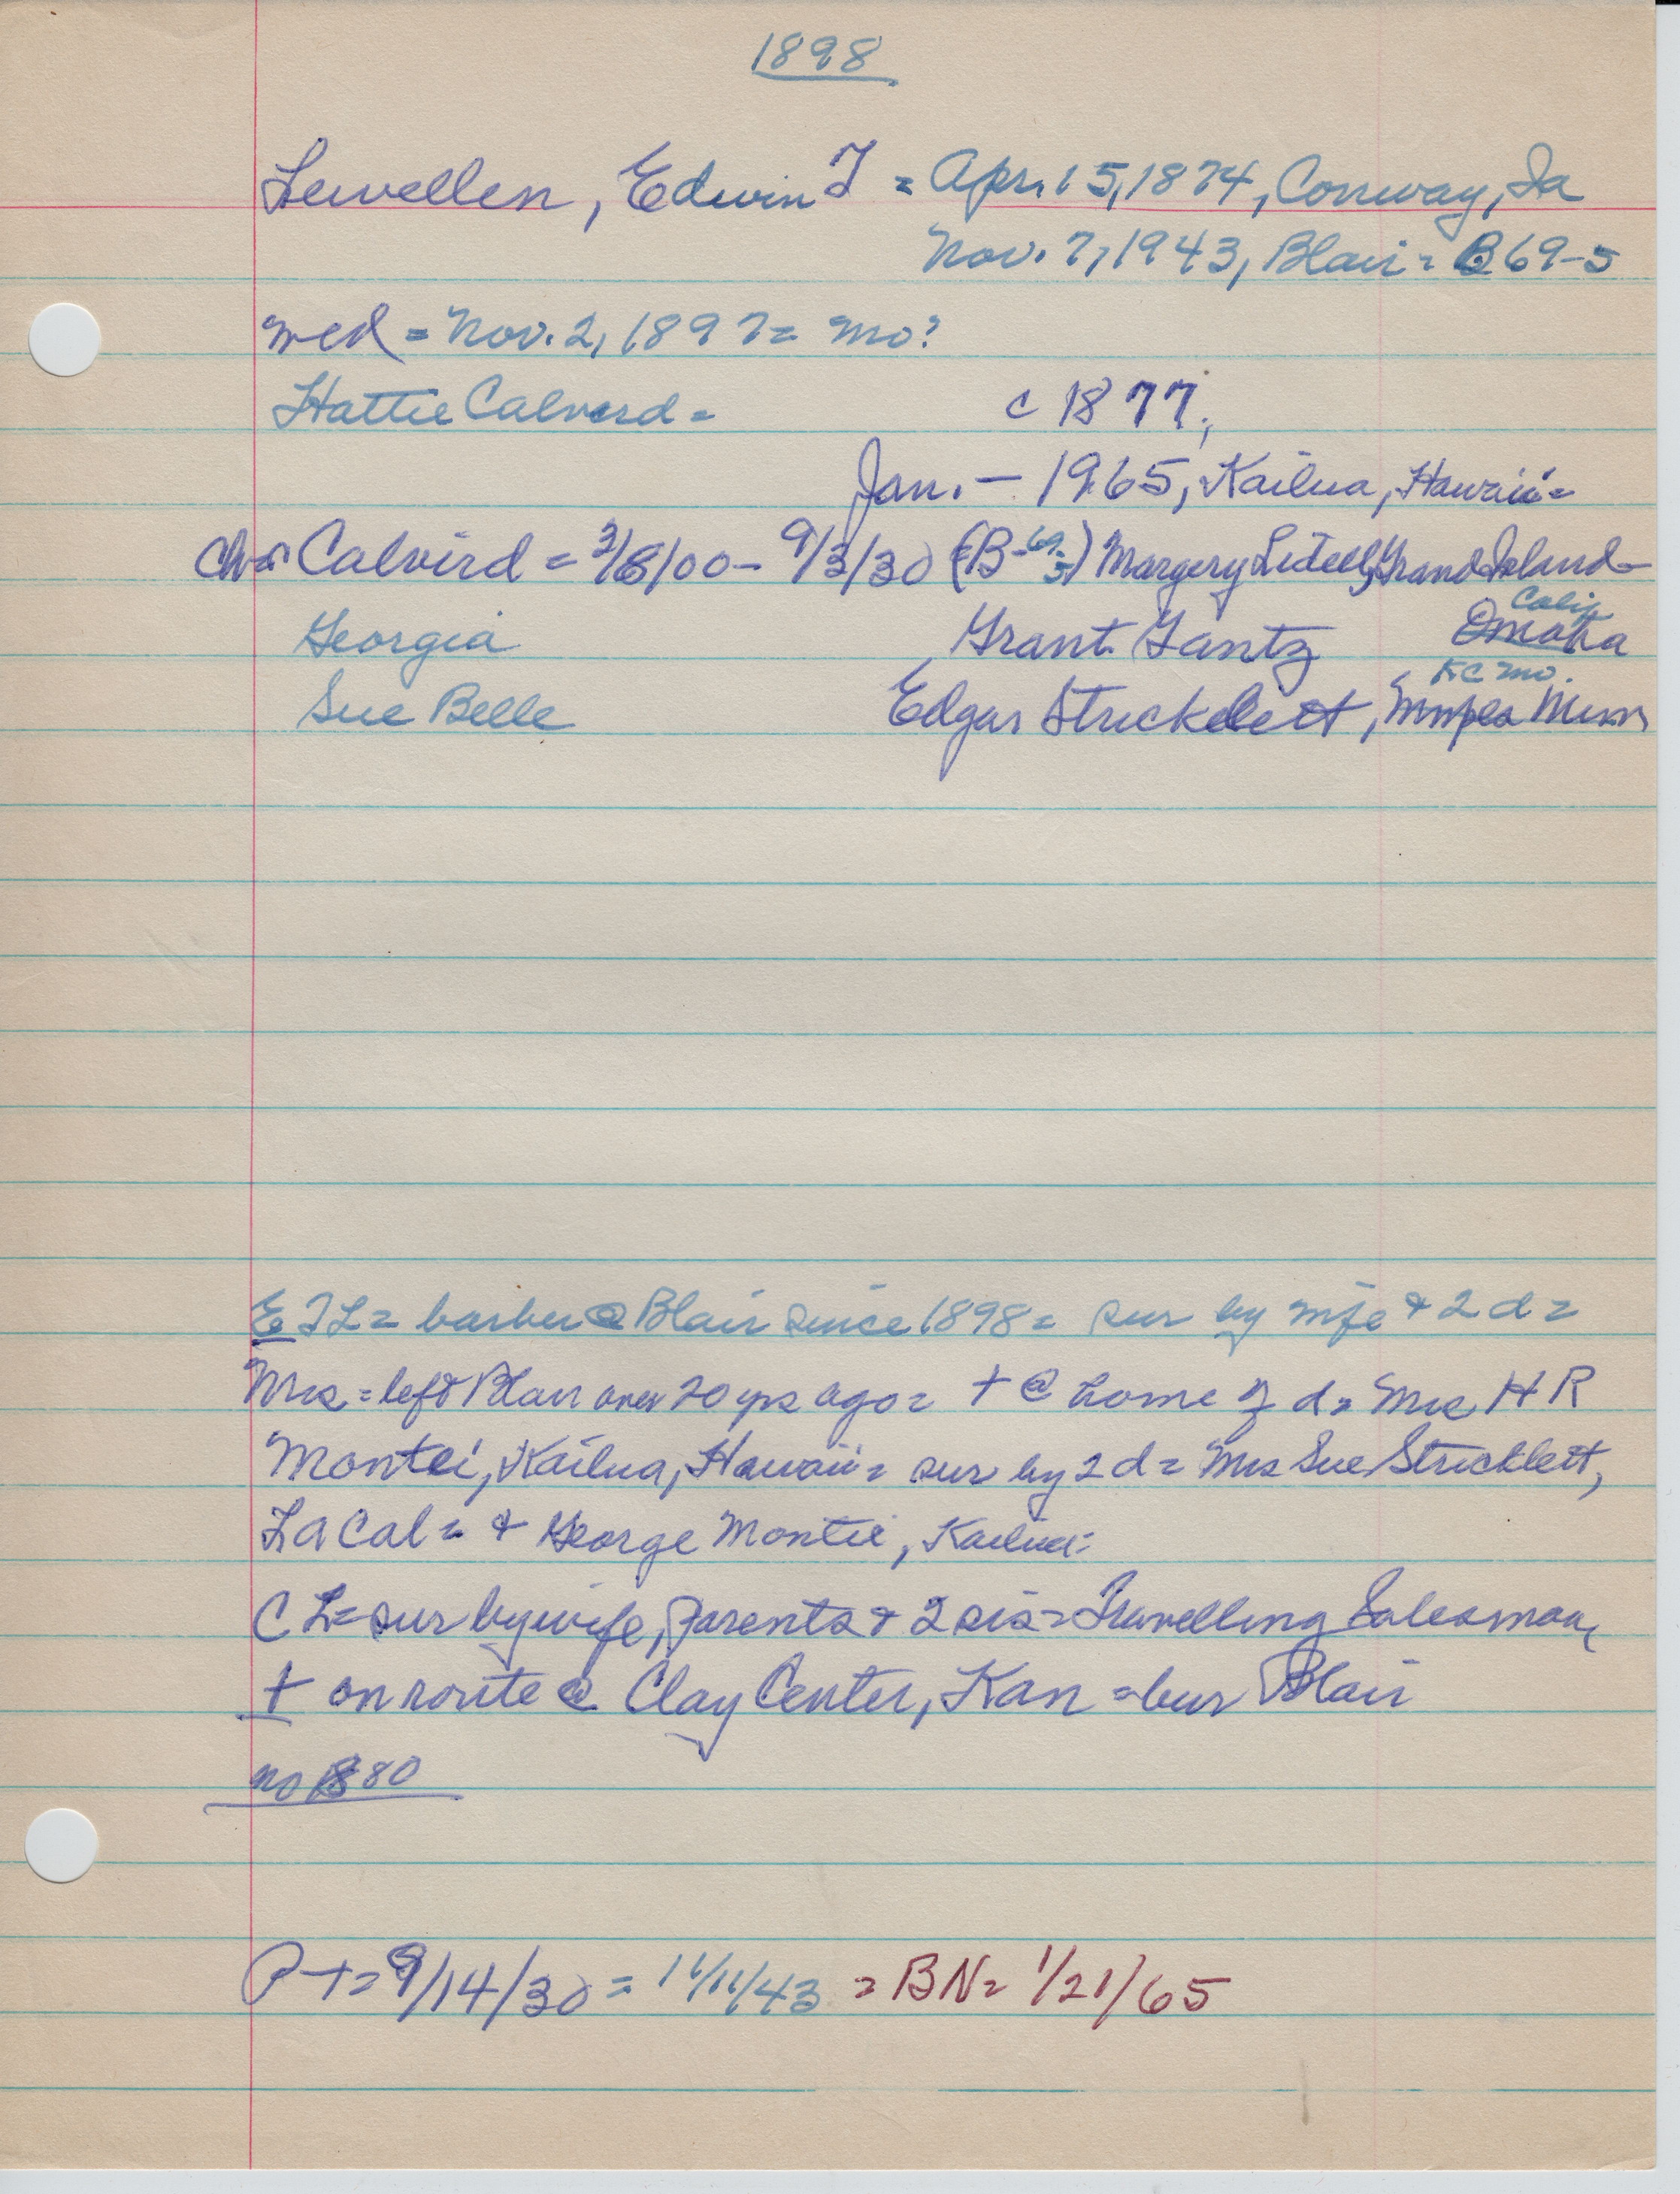 1898
Lewellen, Edwin T = Apr. 15, 1874, Conway, Ia
Nov. 7, 1943, Blair = B69-5
wed = Nov. 2, 1897 = Mo?
Hattie Calverd =
c 1877,
Jan. - 1965, Kailua, Hawaii =
Ch = Calvird = 2/8/00 - 9/3/30 (B-69-5) Margery Liddell, Grand Island -
Calif
Georgia Grant Gantz Omaha
KC Mo.
Sue Belle Edgar Stricklett, Mnpls Minn
ETL = barber @ Blair since 1898 = sur by wife & 2 d =
Mrs = left Blair over 20 yrs ago = + @ home of d = Mrs H R
Montei, Kailua, Hawaii = sur by 2 d = Mrs Sue Stricklett,
La Cal = & George Montie, Kailua =
C L = sur by wife, parents & 2 sis = Travelling Salesman,
+ on route @ Clay Center, Kan = bur Blair
no 1880
P-t = 9/14/30 = 11/11/43 = BN = 1/21/65